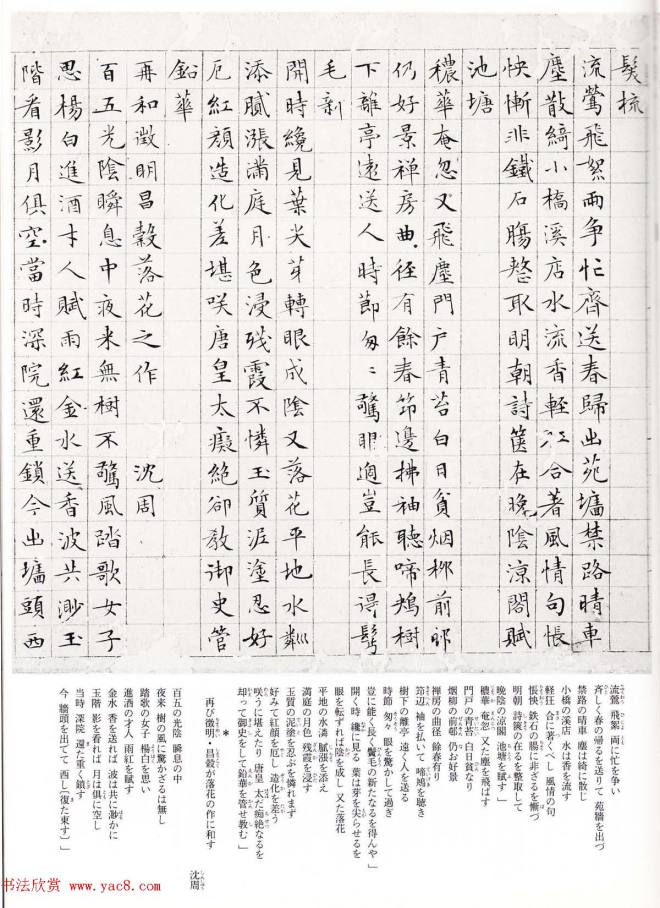 髮梳
流鶯飛絮兩争忙齊送春歸出苑墻禁路晴車
塵散綺小橋溪店水流香輕狂合著風情句悵
怏慚非鐵石腸整取明朝詩篋在晚陰涼閣賦
池塘
穠華奄忽又飛塵門戸青苔白日貧烟柳前邨
仍好景禅房曲径有餘春筇邊拂袖聴啼鴂樹
下離亭遠送人時節匆〻驚眼過豈能長得鬢
毛新
開時纔見葉尖芽轉眼成陰又落花平地水粼
添膩漲滿庭月色浸残霞不憐玉質泥塗忍好
厄紅顔造化差堪咲唐皇太癡絶卻教御史管
鉛華
再和徴明昌穀落花之作 沈周
百五光陰瞬息中夜来無樹不驚風踏歌女子
思楊白進酒才人賦雨紅金水送香波共渺玉
階看影月俱空當時深院還重鎖今出墻頭西
流鶯 飛絮 両に忙を争い
斉しく春の帰るを送りて 苑牆を出づ
禁路の晴車 塵は綺に散じ
小橋の渓店 水は香を流す
軽狂 合に著くべし 風情の句
悵怏 鉄石の腸に非ざるを慚づ
明朝 詩篋の在るを整取して
晩陰の涼閣 池塘を賦す」
穠華 奄忽 又た塵を飛はす
門戸の青苔 白日貧なり
烟柳の前邨 仍お好景
禅房の曲径 餘春有り
筇辺 袖を払いて 啼鴂を聴き
樹下の離亭 遠く人を送る
時節 匆々 眼を驚かして過ぎ
豈に能く長く 鬢毛の新たなるを得んや」
開く時 纔に見る 葉は芽を尖らせるを
眼を転ずれば陰を成し 又た落花
平地の水潾 膩漲を添え
満庭の月色 残霞を浸す
玉質の泥塗を忍ぶを憐れまず
好みて紅顔を厄し 造化を差う
咲うに堪えたり 唐皇 太だ痴絶なるを
却って御史をして鉛華を管せ教む」
*
再び徴明・昌穀が落花の作に和す
沈周
百五の光陰 瞬息の中
夜来 樹の風に驚かざるは無し
踏歌の女子 楊白を思い
進酒の才人 雨紅を賦す
金水 香を送れば 波は共に渺かに
玉階 影を看れば 月は倶に空し
当時 深院 還た重く鎖す
今 牆頭を出でて 西し〔復た東す〕」
书法欣赏 www.yac8.com